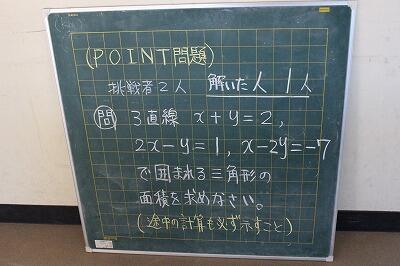 (POINT問題)
挑戦者2人 解いた人 1人
問 3直線 x+y=2,
2x-y=1, x-2y=-7
で囲まれる三角形の
面積を求めなさい。
(途中の計算も必ず示すこと)